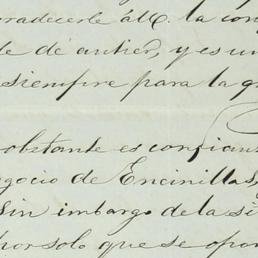 radecerle á U. la con
te de antier, y es un
siempre para la q
obstante es confian
egocio de Encinillas,
Sin imbargo de la si
por solo que se opon